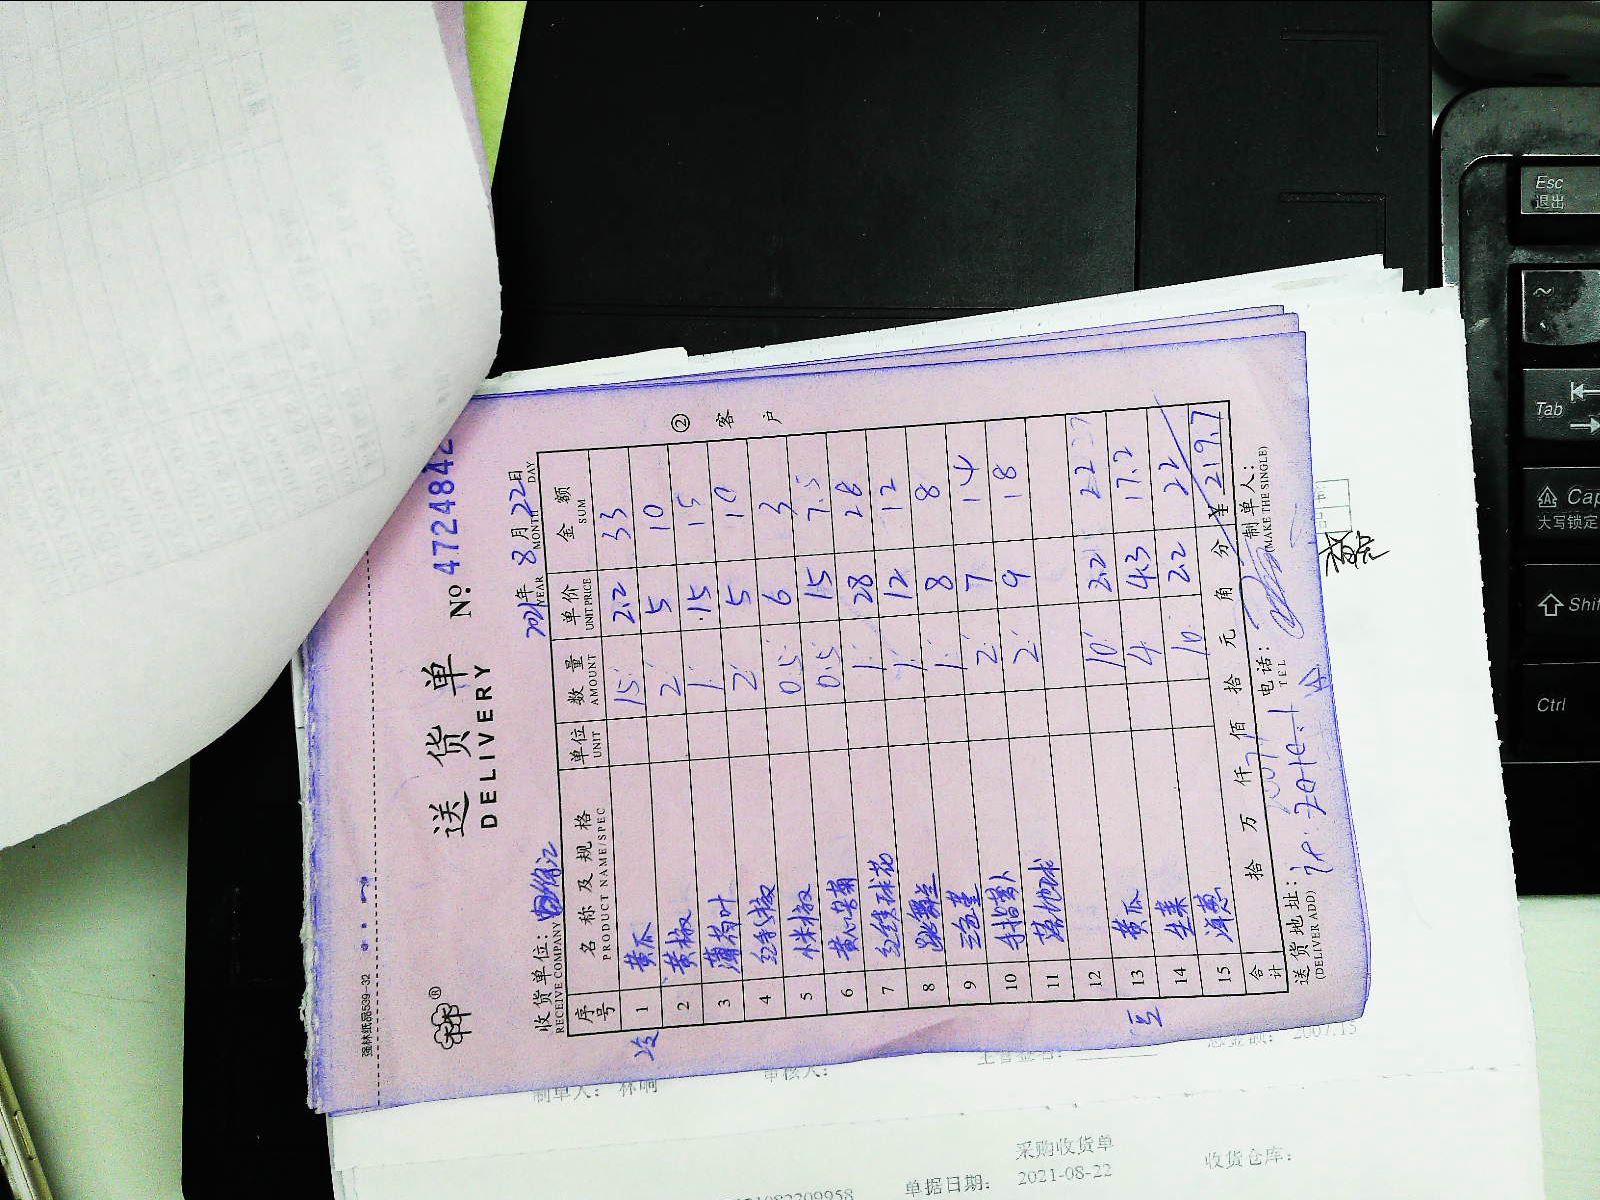 强林纸品539-32
送货单
DELIVERY
№ 4724842
收货单位:
RECEIVE COMPANY
2021年 8月 22日
YEAR MONTH DAY
序号 名称及规格 单位 数量 单价 金额
PRODUCT NAME/SPEC UNIT AMOUNT UNIT PRICE SUM
② 客户
冷
1 黄瓜 15 2.2 33
2 黄椒 2 5 10
3 薄荷叶 1 15 15
4 红尖椒 2 5 10
5 小米椒 0.5 6 3
6 0.5 15 7.5
7 1 28 28
8 跳舞兰 1 12 12
9 三色堇 1 8 8
10 手指萝卜 2 7 14
11 2 9 18
12
豆
13 黄瓜 10 2.2 22
14 生菜 4 4.3 17.2
15 洋葱 10 2.2 22
合计 拾 万 仟 佰 拾 元 角 分 ¥ 219.7
送货地址:
(DELIVER ADD)
电话:
TEL
制单人:
(MAKE THE SINGLE)
制单人: 林响
审核人:
主管签名:
总金额: 2007.15
采购收货单
单据日期: 2021-08-22
收货仓库:
Esc
退出
~
Tab
Cap
大写锁定
Shif
Ctrl